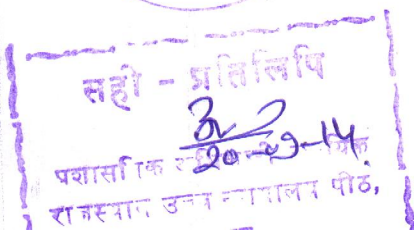 सही - प्रतिलिपि
20-9-14
प्रशासनिक
राजस्थान उच्च न्यायालय पीठ,